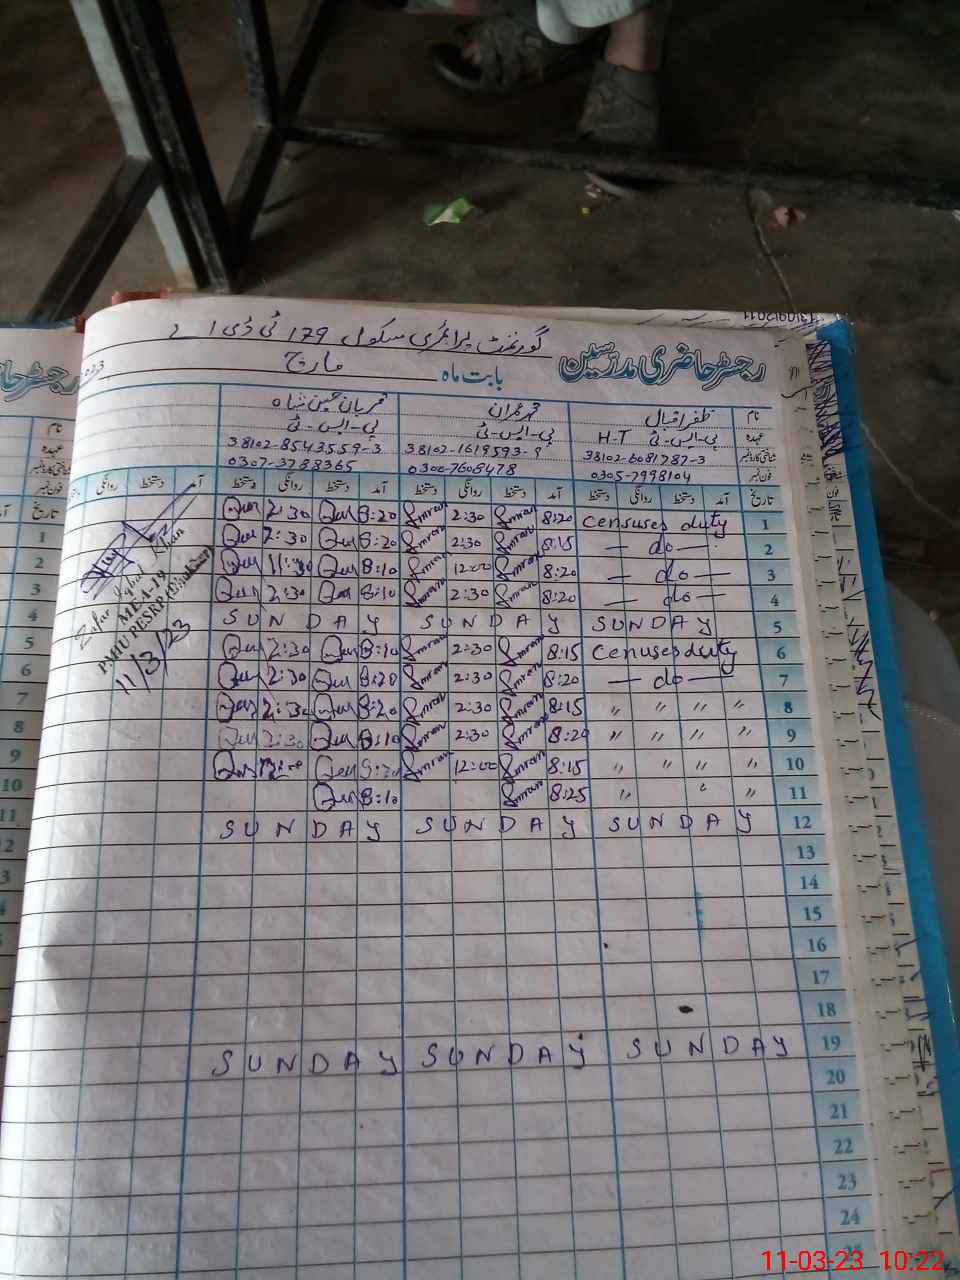 گورنمنٹ پرائمری سکول 179 ٹی ڈی اے
رجسٹر حاضری مدرسین
بابت ماہ مارچ
نام ظفر اقبال محمد عمران قربان حسین شاہ
عہدہ پی-ایس-ٹی H-T پی-ایس-ٹی پی-ایس-ٹی
شناختی کارڈ نمبر 38102-6081787-3 38102-1619593-9 38102-8543559-3
فون نمبر 0305-7998104 0300-7608478 0307-3788365
تاریخ آمد دستخط روانگی دستخط آمد دستخط روانگی دستخط آمد دستخط روانگی دستخط آمد دستخط روانگی دستخط
2:30 8:20 Imran 2:30 Imran 8:20 Censuses duty 1
2:30 8:20 Imran 2:30 Imran 8:15 — do — 2
11:30 8:10 Imran 12:00 Imran 8:20 — do — 3
2:30 8:10 Imran 2:30 Imran 8:20 — do — 4
SUNDAY SUNDAY SUNDAY 5
2:30 8:10 Imran 2:30 Imran 8:15 Censuses duty 6
2:30 8:20 Imran 2:30 Imran 8:20 — do — 7
2:30 8:20 Imran 2:30 Imran 8:15 " " " " 8
2:30 8:10 Imran 2:30 Imran 8:20 " " " " 9
Imran 12:00 Imran 8:15 " " " " 10
8:10 Imran 8:25 " " " 11
SUNDAY SUNDAY SUNDAY 12
13
14
15
16
17
18
SUNDAY SUNDAY SUNDAY 19
20
21
22
23
24
25
Zafar Iqbal Khan
MEA-19
PMIU PESRP
11/3/23
رجسٹر حا
نام
عہدہ
تاریخ
1
2
3
4
5
6
7
8
9
10
11
11-03-23 10:22